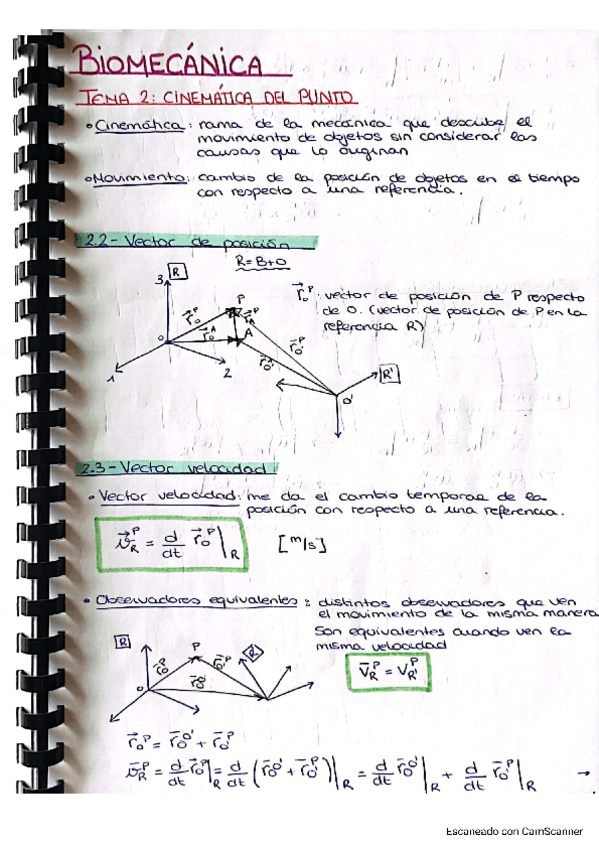 BIOMECÁNICA
TEMA 2: CINEMÁTICA DEL PUNTO
• Cinemática: rama de la mecánica que describe el
movimiento de objetos sin considerar las
causas que lo originan
• Movimiento: cambio de la posición de objetos en el tiempo
con respecto a una referencia.
2.2- Vector de posición
R = B + O
3 R
P
r⃗_O^P
r⃗_O^A
A
O
1
2
R'
O'
r⃗_O^P : vector de posición de P respecto
de O. (vector de posición de P en la
referencia R)
2.3- Vector velocidad
• Vector velocidad: me da el cambio temporal de la
posición con respecto a una referencia.
v⃗_R^P = d/dt r⃗_O^P |_R [m/s]
• Observadores equivalentes: distintos observadores que ven
el movimiento de la misma manera
Son equivalentes cuando ven la
misma velocidad
v̄_R^P = v_R'^P
R
P
R'
O
r̄_O^P = r̄_O^O' + r̄_O'^P
v̄_R^P = d/dt r̄_O^P |_R = d/dt (r̄_O^O' + r̄_O'^P) |_R = d/dt r̄_O^O' |_R + d/dt r̄_O'^P |_R →
Escaneado con CamScanner